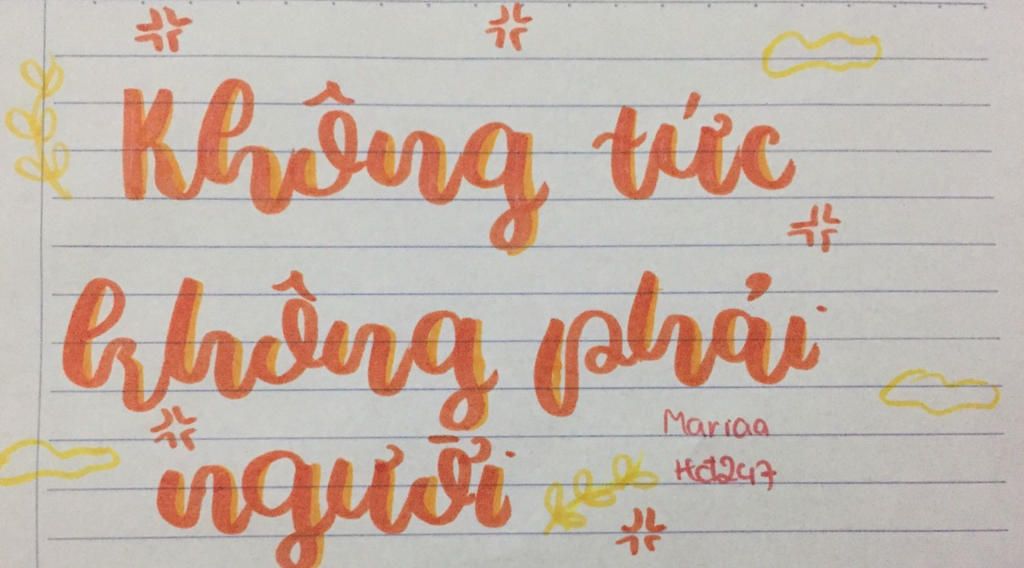 Không tức
không phải
người
Mariaa
Hd247